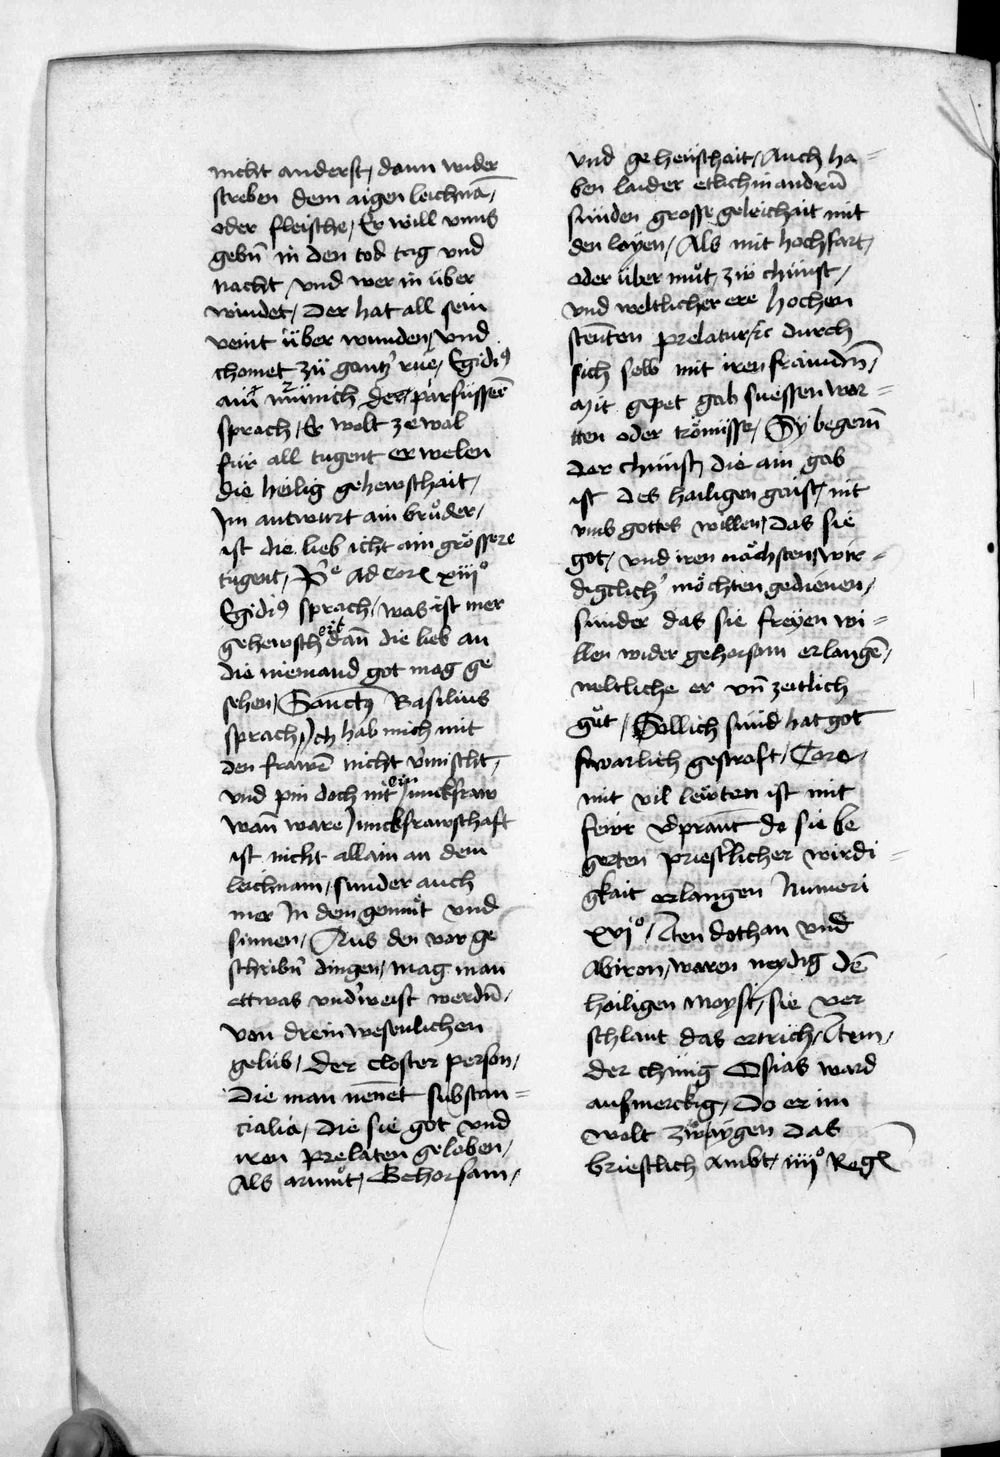 nicht anderst, dann wider
streben dem aigen leichnā,
oder fleische, Er will vnns
gebn̄ in den tod tag vnd
nacht, vnd wer in über
windet, Der hat all sein
veint über wunden, vnd
chomet zü gantz' rue, Egidiꝰ
ain münich der parfüssen̄
sprach, Er wolt ze wal
für all tugent er welen
die heilig gehewschait,
Im antwurt ain brůder,
ist die lieb icht ain grössere
tugent, pᵃ Ad Cor xiiiº
Egidiꝰ sprach, was ist mer
gehewschait dan̄ die lieb an
die niemand got mag ge
sehen, Sanctꝰ Basilius
sprach, Ich hab mich mit
den frawē nicht v'mischt,
vnd pin doch nit ein junckfraw
wan̄ ware junckfrawschaft
ist nicht allain an dem
leichnam, sunder auch
mer In dem gemůt vnd
sinnen, Aus den vor ge
schribn̄ dingen, mag man
ettwas vnd'weist werdn̄,
von drein wesenlichen
gelüb, der closter person,
Die man nen̄et substan=
cialia, die sie got vnd
iren prelaten geloben,
Als armůt, Gehorsam,
vnd geheüschait, Auch ha=
ben laider etlich in andrn̄
sünden grosse geleichait mit
den layen, Als mit hochfart,
oder über můt, zw chünst,
vnd weltlicher ere hochen
steüten prelatur, ꝛc durch
sich selb mit iren fraindn̄,
Mit gepet gab suessen wor=
tten oder trömisse, Sy begern̄
der chünst, die ain gab
ist des hailigen gaist, nit
vmb gottes willen, Das sie
got, vnd iren nächsten wir=
digclich' möchten gedienen,
sünder das sie freyen wi=
llen wider gehorsam erlangē,
weltliche er vn̄ zeitlich
gůt, Sollich sünd hat got
swarlich gestraft, Core,
mit vil lewten ist mit
fewr v'prant do sie be
gerten priesterlicher wirdi=
gkait erlangen Numeri
xviº, Item dathan vnd
Abiron, waren neydig dē
hailigen moysi, sie ver
schlant das ertrich, Item,
der chünig Osias ward
aufmerckig, Do er im
wolt zwaygen das
briestlich Ambt, iiiiº Reg